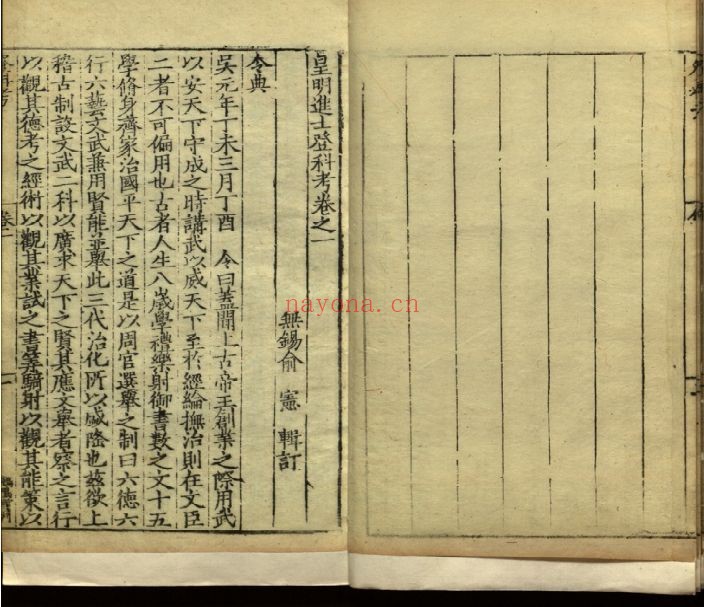 皇明進士登科考卷之一
無錫俞 憲 輯訂
令典
吳元年丁未三月丁酉 令曰蓋聞上古帝王創業之際用武
以安天下守成之時講武以威天下至於經綸撫治則在文臣
二者不可偏用也古者人生八歲學禮樂射御書數之文十五
學脩身齊家治國平天下之道是以周官選舉之制曰六德六
行六藝文武兼用賢能並舉此三代治化所以盛隆也茲欲上
稽古制設文武二科以廣求天下之賢其應文舉者察之言行
以觀其德考之經術以觀其業試之書筭騎射以觀其能策以
卷一
nayona.cn